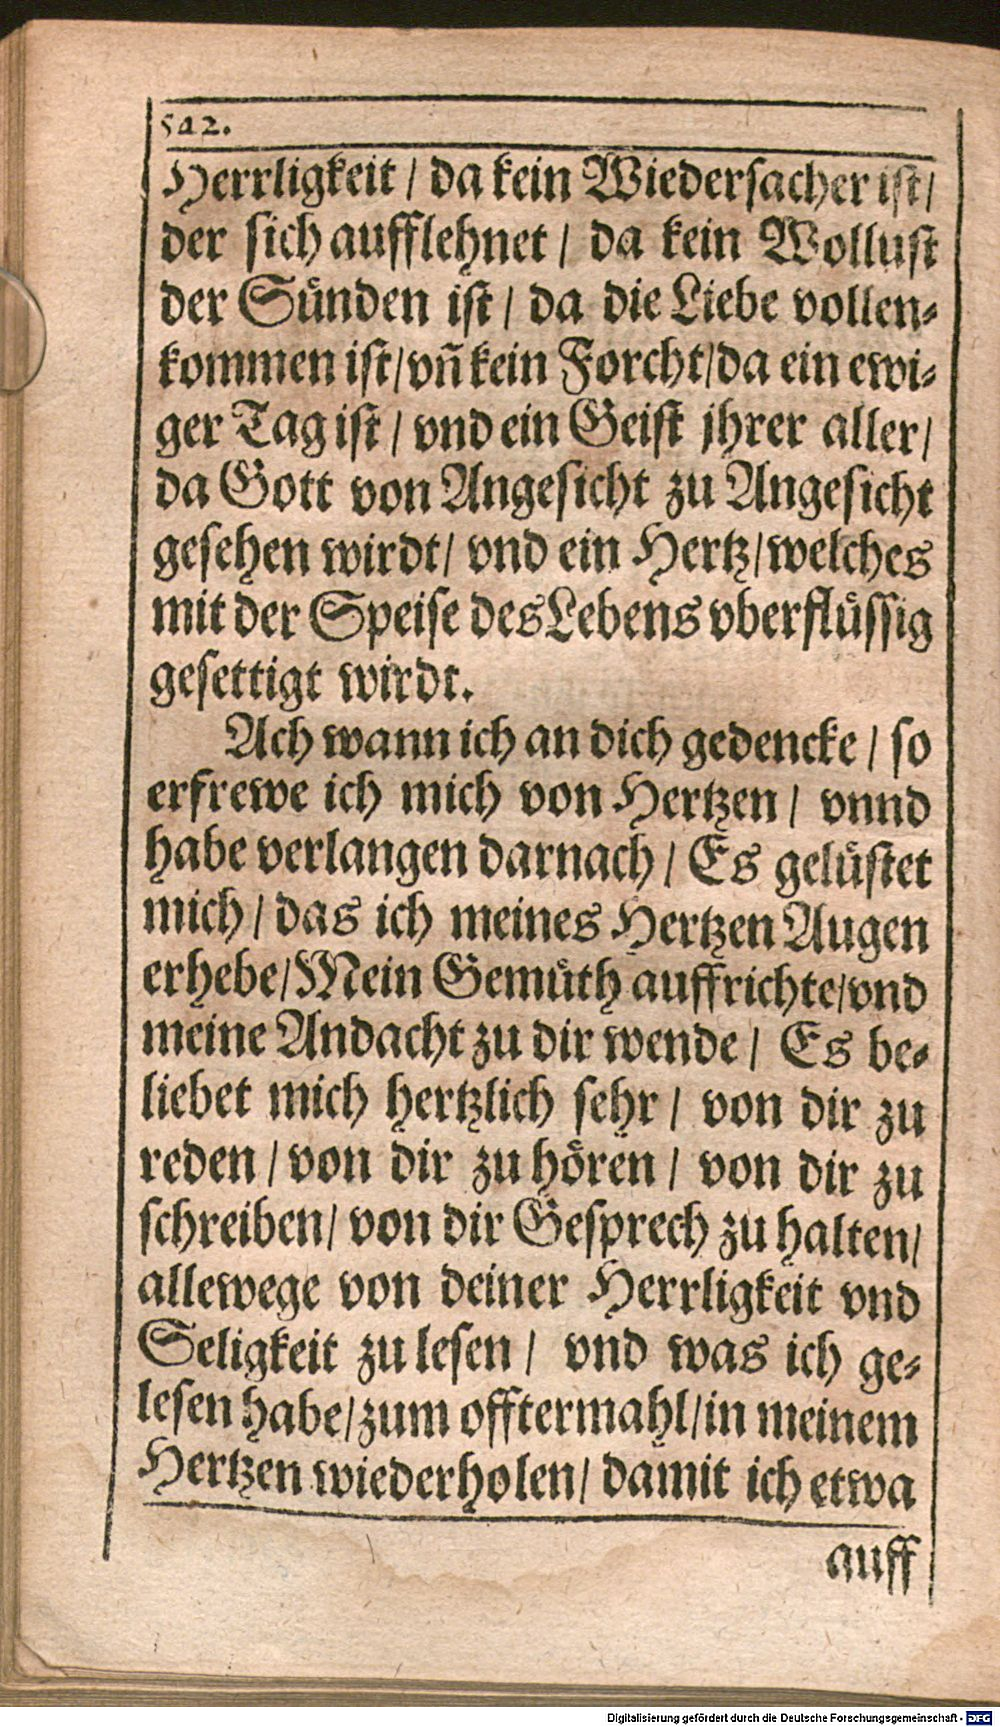 542.
Herrligkeit / da kein Wiedersacher ist /
der sich aufflehnet / da kein Wollust
der Sünden ist / da die Liebe vollen-
kommen ist / vñ kein Forcht / da ein ewi-
ger Tag ist / vnd ein Geist jhrer aller /
da Gott von Angesicht zu Angesicht
gesehen wirdt / vnd ein Hertz / welches
mit der Speise des Lebens vberflüssig
gesettigt wirdt.
Ach wann ich an dich gedencke / so
erfrewe ich mich von Hertzen / vnnd
habe verlangen darnach / Es gelüstet
mich / das ich meines Hertzen Augen
erhebe / Mein Gemüth auffrichte / vnd
meine Andacht zu dir wende / Es be-
liebet mich hertzlich sehr / von dir zu
reden / von dir zu hören / von dir zu
schreiben / von dir Gesprech zu halten /
allewege von deiner Herrligkeit vnd
Seligkeit zu lesen / vnd was ich ge-
lesen habe / zum offtermahl / in meinem
Hertzen wiederholen / damit ich etwa
auff
Digitalisierung gefördert durch die Deutsche Forschungsgemeinschaft - DFG